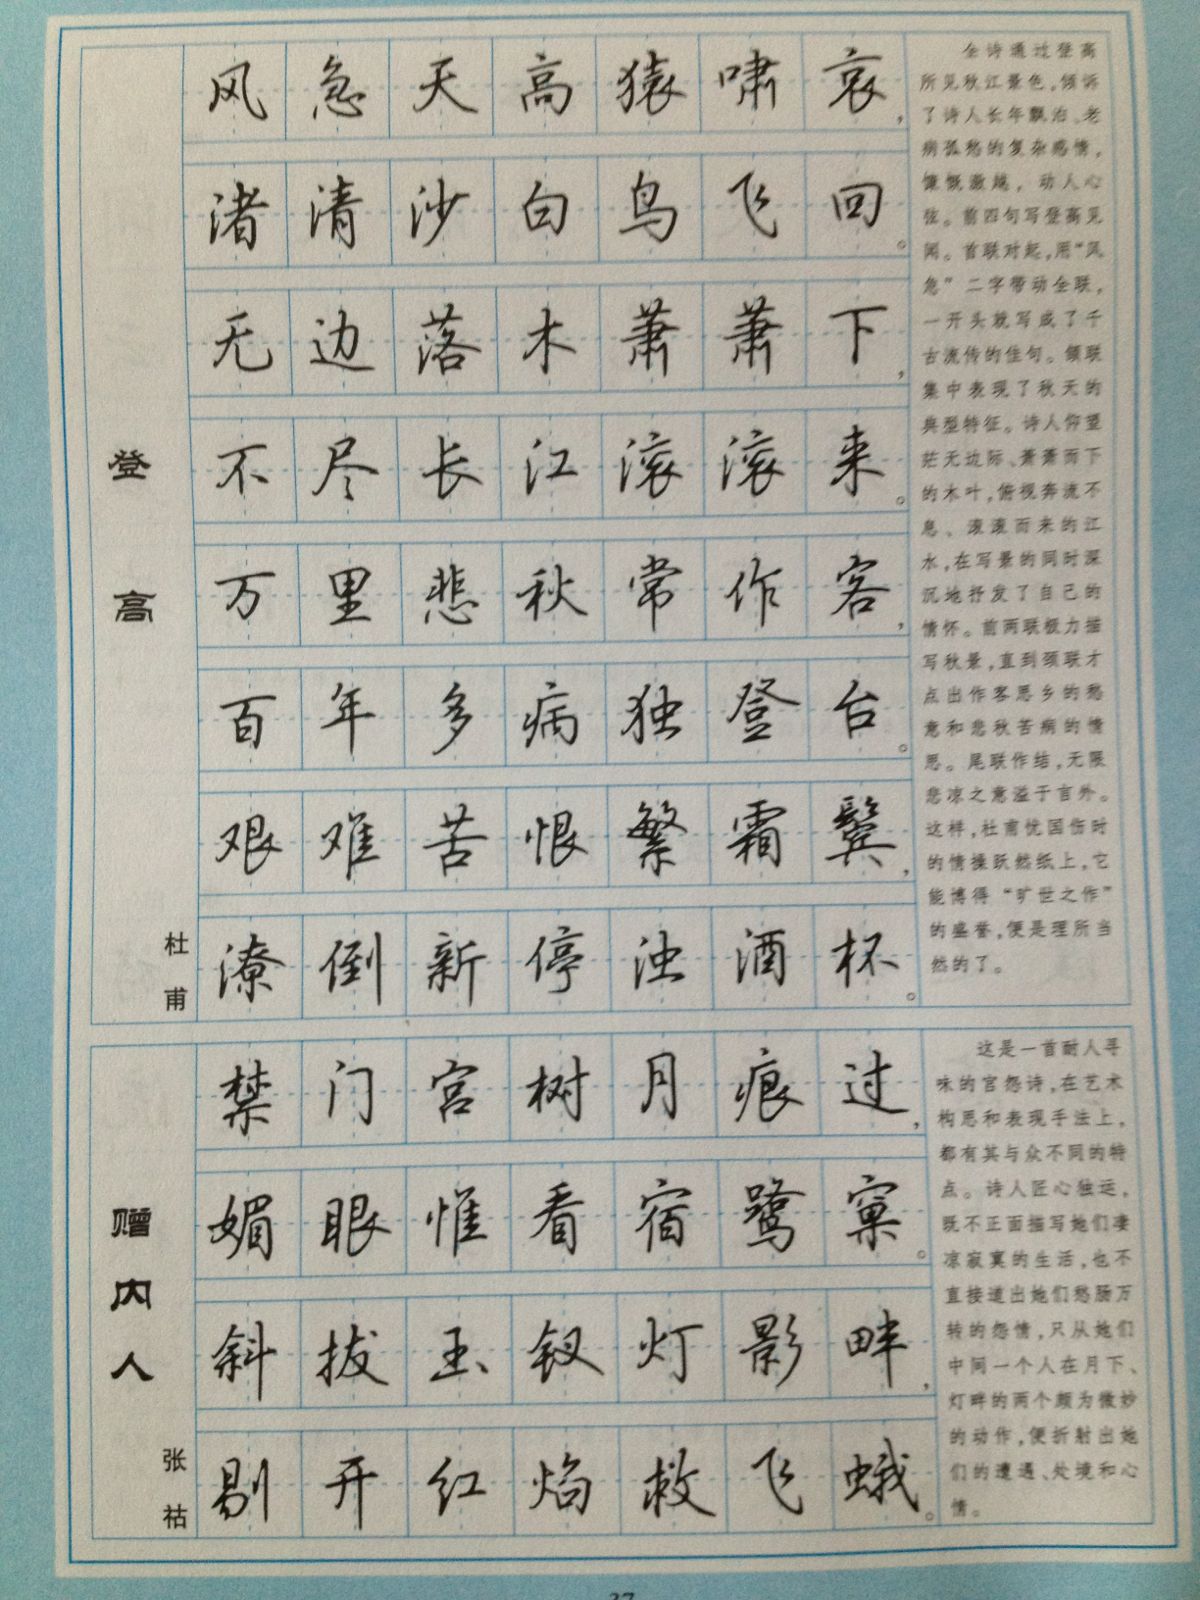 登高
杜甫
风急天高猿啸哀，
渚清沙白鸟飞回。
无边落木萧萧下，
不尽长江滚滚来。
万里悲秋常作客，
百年多病独登台。
艰难苦恨繁霜鬓，
潦倒新停浊酒杯。
全诗通过登高
所见秋江景色，倾诉
了诗人长年飘泊、老
病孤愁的复杂感情，
慷慨激越，动人心
弦。前四句写登高见
闻。首联对起，用“风
急”二字带动全联，
一开头就写成了千
古流传的佳句。颔联
集中表现了秋天的
典型特征。诗人仰望
茫无边际、萧萧而下
的木叶，俯视奔流不
息、滚滚而来的江
水，在写景的同时深
沉地抒发了自己的
情怀。前两联极力描
写秋景，直到颈联才
点出作客思乡的愁
意和悲秋苦病的情
思。尾联作结，无限
悲凉之意溢于言外。
这样，杜甫忧国伤时
的情操跃然纸上，它
能博得“旷世之作”
的盛誉，便是理所当
然的了。
赠内人
张祜
禁门宫树月痕过，
媚眼惟看宿鹭窠。
斜拔玉钗灯影畔，
剔开红焰救飞蛾。
这是一首耐人寻
味的宫怨诗，在艺术
构思和表现手法上，
都有其与众不同的特
点。诗人匠心独运，
既不正面描写她们凄
凉寂寞的生活，也不
直接道出她们愁肠万
转的怨情，只从她们
中间一个人在月下、
灯畔的两个颇为微妙
的动作，便折射出她
们的遭遇、处境和心
情。